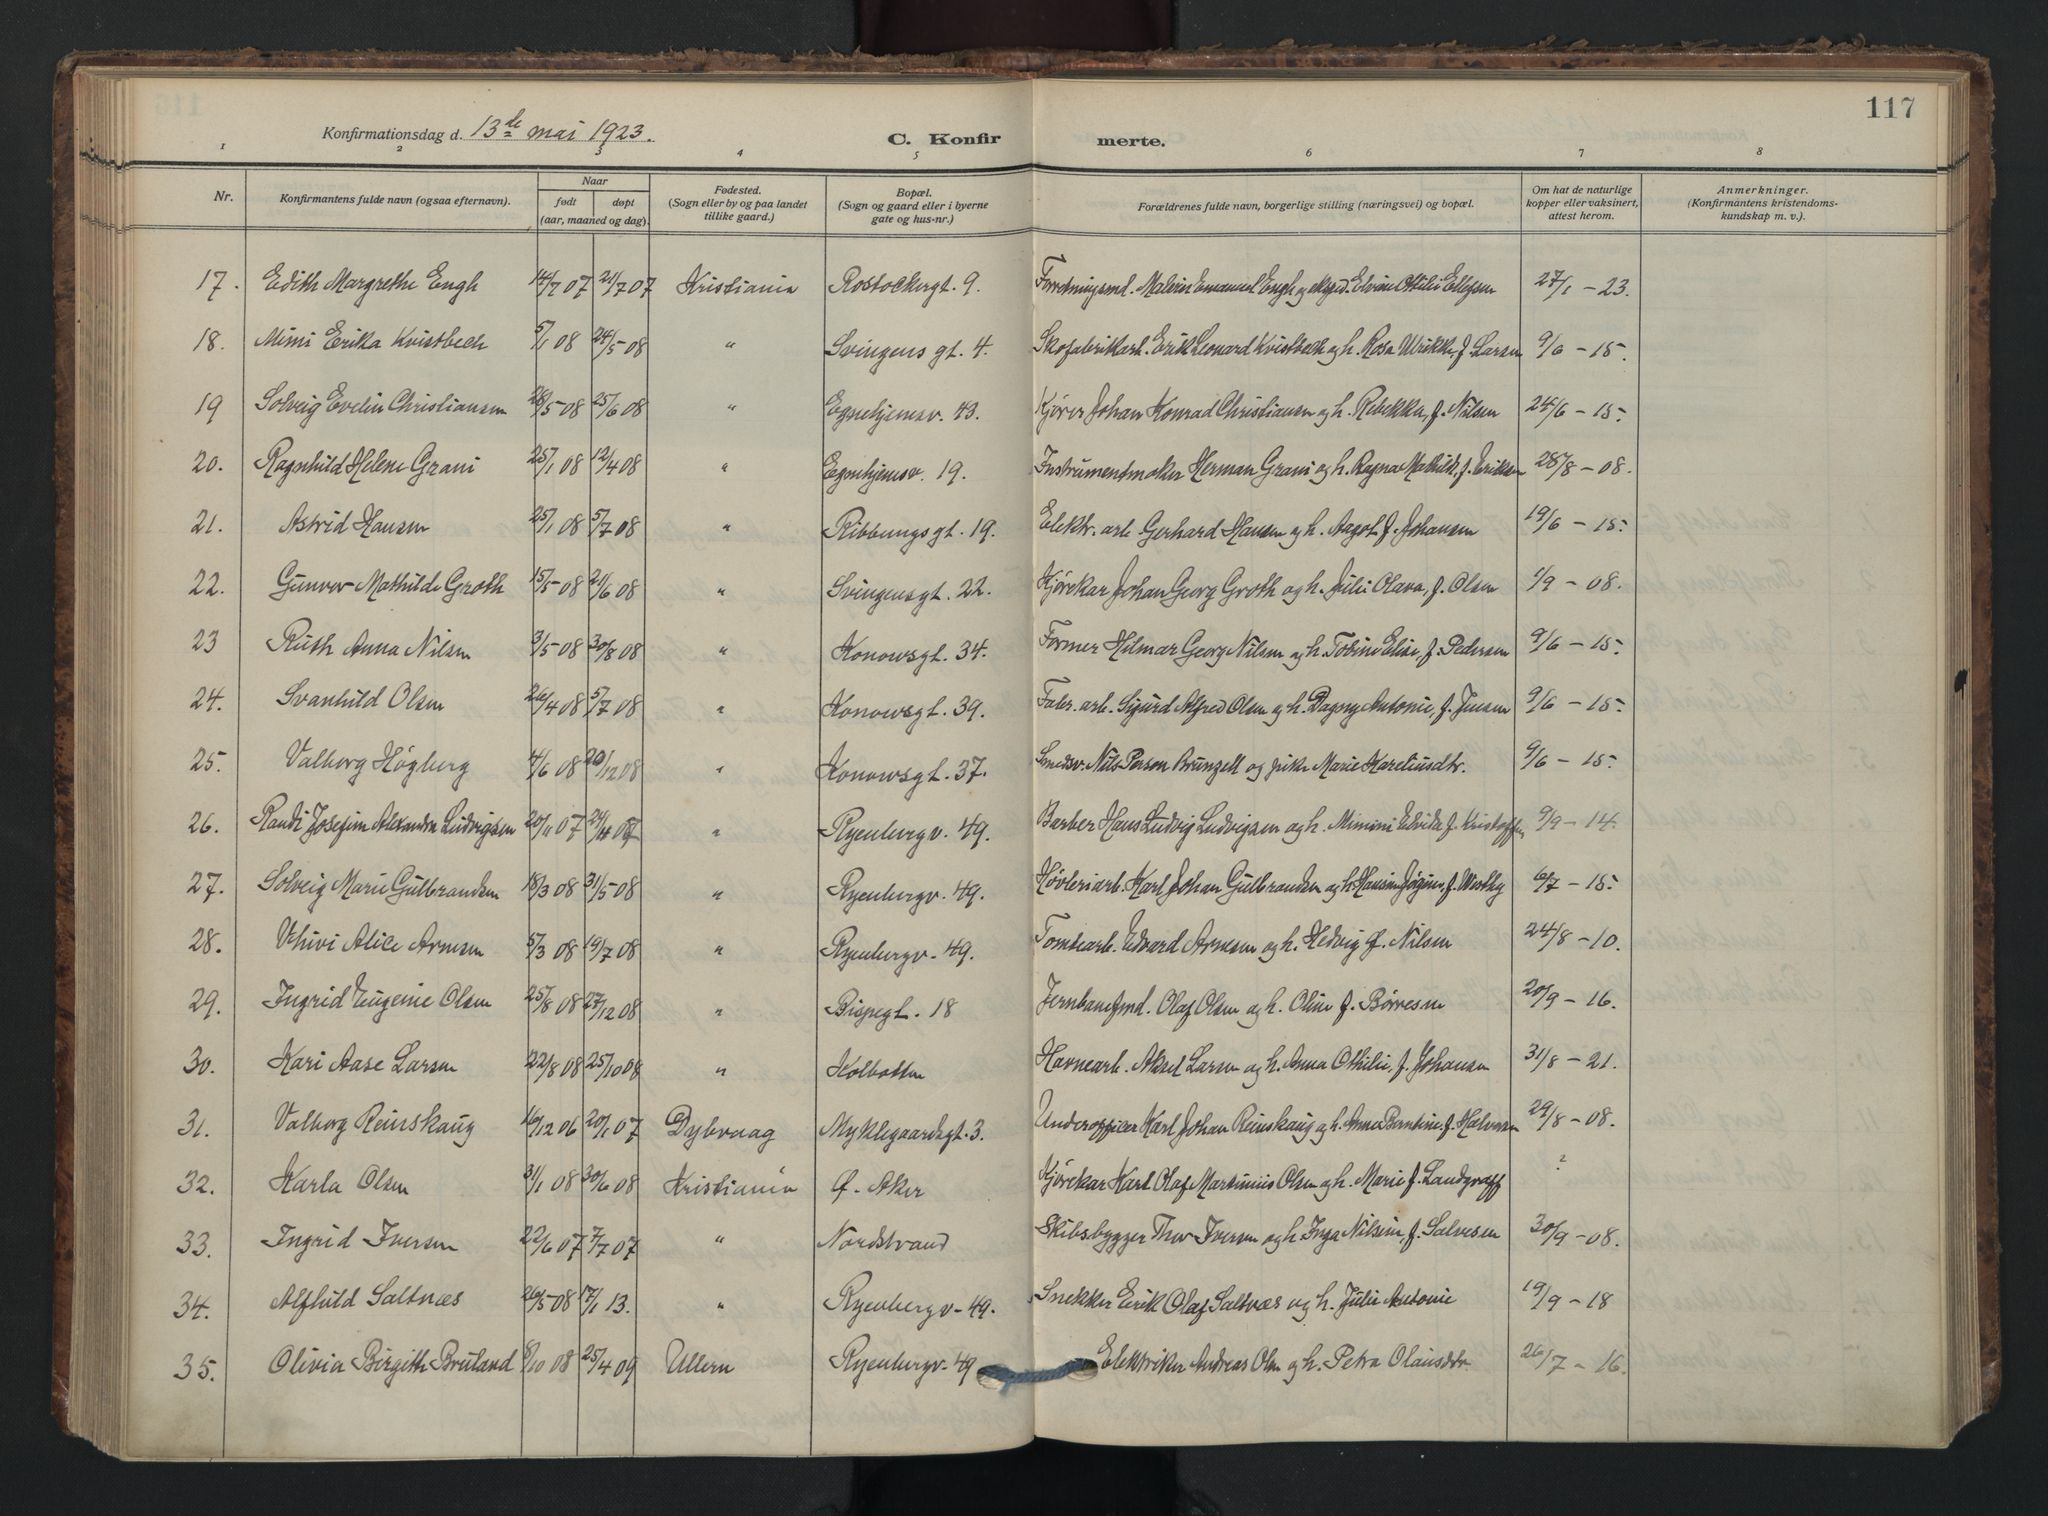 117
Konfirmationsdag d. 13de mai 1923.
C. Konfirmerte.
1 2 3 4 5 6 7 8
Nr. Konfirmantens fulde navn (ogsaa efternavn). Naar født døpt (aar, maaned og dag). Fødested. (Sogn eller by og paa landet tillike gaard.) Bopæl. (Sogn og gaard eller i byerne gate og hus-nr.) Forældrenes fulde navn, borgerlige stilling (næringsvei) og bopæl. Om hat de naturlige kopper eller vaksinert, attest herom. Anmerkninger. (Konfirmantens kristendomskundskap m. v.)
17. Edith Margrethe Engh 14/7 07 21/7 07 Kristiania Rostockergt. 9. Forretningsmd. Malvin Emanuel Engh og eksped. Elvine Othilie Ellefsen 27/1 - 23.
18. Mimi Erika Kvistbech 5/1 08 24/5 08 " Svingens gt. 4. Skofabrikarb. Erik Leonard Kvistbech og h. Rosa Ulrikke, f. Larsen 9/6 - 15.
19 Solveig Evelin Christiansen 28/5 08 25/6 08 " Egnehjemsv. 43. Kjører Johan Konrad Christiansen og h. Rebekka, f. Nilsen 24/6 - 15.
20. Ragnhild Helene Grani 25/1 08 12/4 08 " Egnehjemsv. 19. Instrumentmaker Herman Grani og h. Ragna Mathilde, f. Eriksen 28/8 - 08.
21. Astrid Hansen 25/1 08 5/7 08 " Ribbungsgt. 19. Elektr. arb. Gerhard Hansen og h. Aagot f. Johansen 19/6 - 15.
22. Gunvor Mathilde Groth 15/5 08 21/6 08 " Svingensgt. 22. Kjørekar Johan Georg Groth og h. Julie Olava, f. Olsen 1/9 - 08.
23 Ruth Anna Nilsen 3/5 08 30/8 08 " Konowsgt. 34. Former Hilmar Georg Nilsen og h. Tobine Elise, f. Pedersen 9/6 - 15.
24. Svanhild Olsen 26/4 08 5/7 08 " Konowsgt. 39. Fabr. arb. Sigurd Alfred Olsen og h. Dagny Antonie, f. Jensen 9/6 - 15.
25. Valborg Høgberg 4/6 08 20/12 08 " Konowsgt. 37. Smedsv. Nils Person Brunzell og pike Marie Kareliusdtr. 9/6 - 15.
26. Randi Josefine Alexandra Ludvigsen 20/11 07 " Ryenbergv. 49. Barber Hans Ludvig Ludvigsen og h. Mimmi Elvida f. Kristoffers 9/9 - 14.
27. Solveig Marie Gulbrandsen 18/3 08 31/5 08 " Ryenbergv. 49. Høvleriarb. Karl Johan Gulbrandsen og h. Hansine Jørgine, f. Westby 6/7 - 15.
28. Vivi Alice Arnesen 5/3 08 19/7 08 " Ryenbergv. 49. Tomtearb. Edvard Arnesen og h. Hedvig f. Nilsen 24/8 - 10.
29. Ingrid Eugenie Olsen 25/8 08 27/12 08 " Bispegt. 18 Jernbanefmd. Olaf Olsen og h. Oline f. Børresen 20/9 - 16.
30. Kari Aase Larsen 22/8 08 25/10 08 " Kolbotten Havnearb. Aksel Larsen og h. Anna Othilie, f. Johansen 31/8 - 21.
31. Valborg Reinskaug 16/12 06 20/1 07 Dybvaag Myklegaardsgt. 3. Underofficer Karl Johan Reinskaug og h. Anne Bentine f. Halvorsen 29/8 - 08.
32. Karla Olsen 31/1 08 30/6 08 Kristiania Ø. Aker Kjørekar Karl Olaf Martinius Olsen og h. Marie f. Landgraff ?
33. Ingrid Iversen 22/6 07 7/7 07 " Nordstrand Skibsbygger Thor Iversen og h. Inga Nilsine, f. Salvesen 30/9 - 08.
34. Alfhild Saltnæs 26/5 08 17/1 13. " Ryenbergv. 49. Snekker Erik Olaf Saltnæs og h. Julie Antonie 19/9 - 18
35. Olivia Birgith Bruland 8/10 08 25/4 09 Ullern Ryenbergv. 49 Elektriker Andreas Olsen og h. Petra Olausdtr. 26/7 - 16.